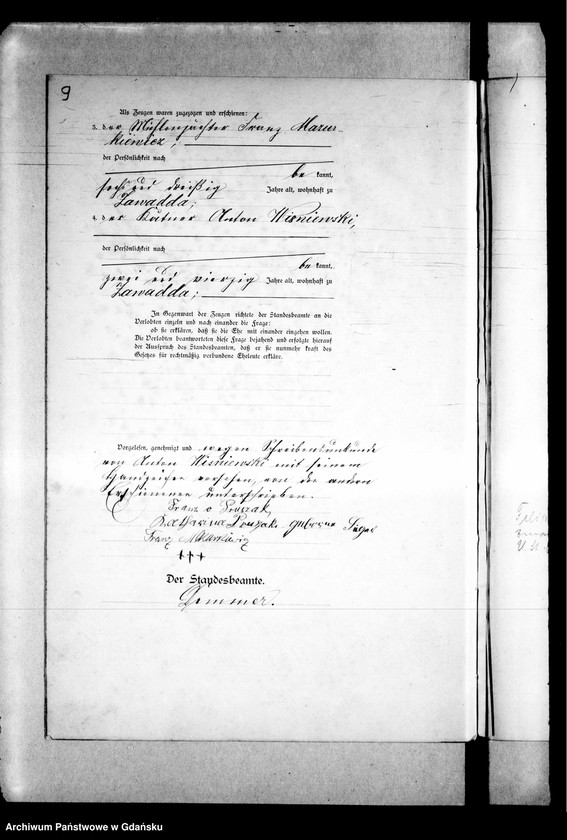 9
Als Zeugen waren zugezogen und erschienen:
3. der Mühlenpächter Franz Marus-
kiewicz,
der Persönlichkeit nach
be kannt,
sechs und dreißig Jahre alt, wohnhaft zu
Zawadda;
4. der Kätner Anton Wisniewski,
der Persönlichkeit nach
be kannt,
zwei und vierzig Jahre alt, wohnhaft zu
Zawadda;
In Gegenwart der Zeugen richtete der Standesbeamte an die
Verlobten einzeln und nach einander die Frage:
ob sie erklären, daß sie die Ehe mit einander eingehen wollen.
Die Verlobten beantworteten diese Frage bejahend und erfolgte hierauf
der Ausspruch des Standesbeamten, daß er sie nunmehr kraft des
Gesetzes für rechtmäßig verbundene Eheleute erkläre.
Vorgelesen, genehmigt und wegen Schreibensunkunde
von Anton Wisniewski mit seinem
Handzeichen versehen, von den andern
Erschienenen unterschrieben.
Franz
Katharina
Franz
+++
Der Standesbeamte.
Demmer.
Archiwum Państwowe w Gdańsku